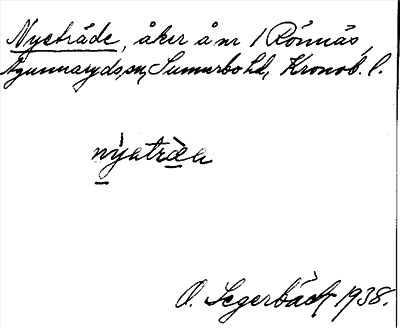 Nyeträde, åker å nr 1 Rönnäs,
Agunnaryds sn, Sunnerbo hd, Kronob. l.
nỳatræ̀a
O. Segerbäck 1938.